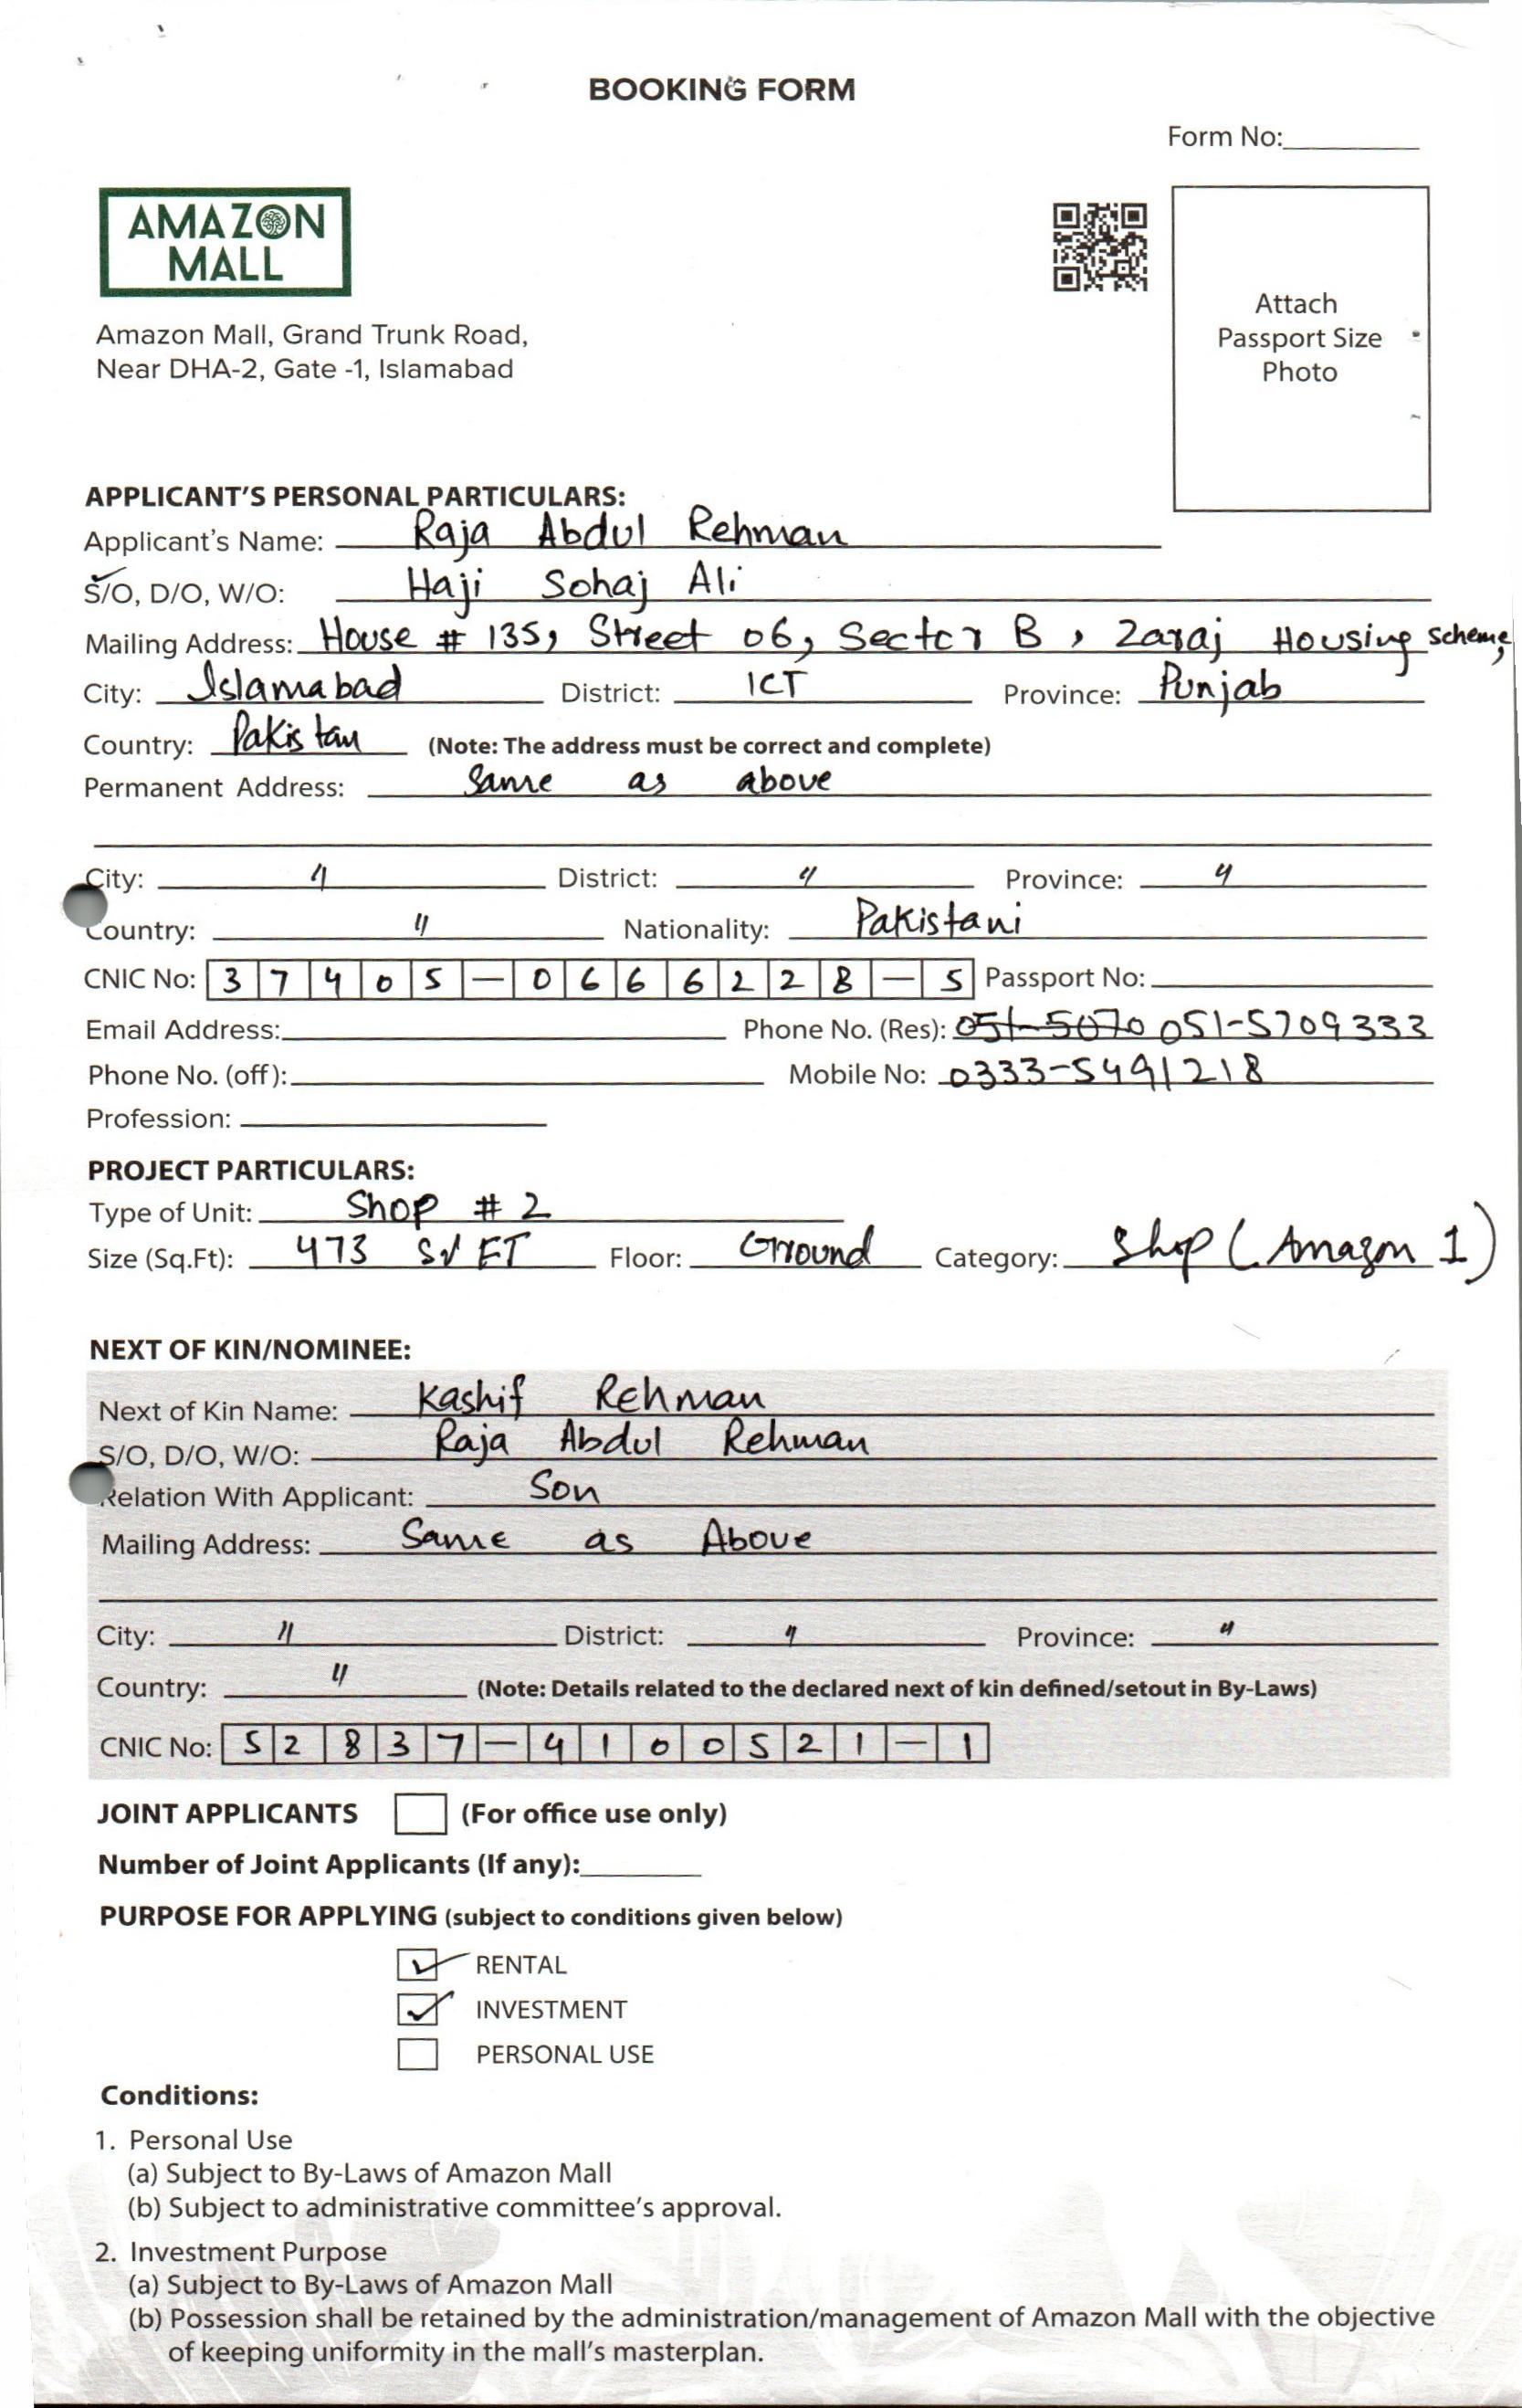 BOOKING FORM
Form No:
AMAZON
MALL
Amazon Mall, Grand Trunk Road,
Near DHA-2, Gate -1, Islamabad
Attach
Passport Size
Photo
APPLICANT'S PERSONAL PARTICULARS:
Applicant's Name: Raja Abdul Rehman
S/O, D/O, W/O: Haji Sohaj Ali
Mailing Address: House # 135, Street 06, Sector B, Zaraj Housing Scheme,
City: Islamabad District: ICT Province: Punjab
Country: Pakistan (Note: The address must be correct and complete)
Permanent Address: Same as above
City: " District: " Province: "
Country: " Nationality: Pakistani
CNIC No: 37405-0666228-5 Passport No:
Email Address: Phone No. (Res): 051-5070 051-5709333
Phone No. (off): Mobile No: 0333-5491218
Profession:
PROJECT PARTICULARS:
Type of Unit: Shop # 2
Size (Sq.Ft): 473 FT Floor: Ground Category: Shop (Amazon 1)
NEXT OF KIN/NOMINEE:
Next of Kin Name: Kashif Rehman
S/O, D/O, W/O: Raja Abdul Rehman
Relation With Applicant: Son
Mailing Address: Same as Above
City: " District: " Province: "
Country: " (Note: Details related to the declared next of kin defined/setout in By-Laws)
CNIC No: 52837-4100521-1
JOINT APPLICANTS (For office use only)
Number of Joint Applicants (If any):
PURPOSE FOR APPLYING (subject to conditions given below)
RENTAL
INVESTMENT
PERSONAL USE
Conditions:
1. Personal Use
(a) Subject to By-Laws of Amazon Mall
(b) Subject to administrative committee's approval.
2. Investment Purpose
(a) Subject to By-Laws of Amazon Mall
(b) Possession shall be retained by the administration/management of Amazon Mall with the objective
of keeping uniformity in the mall's masterplan.